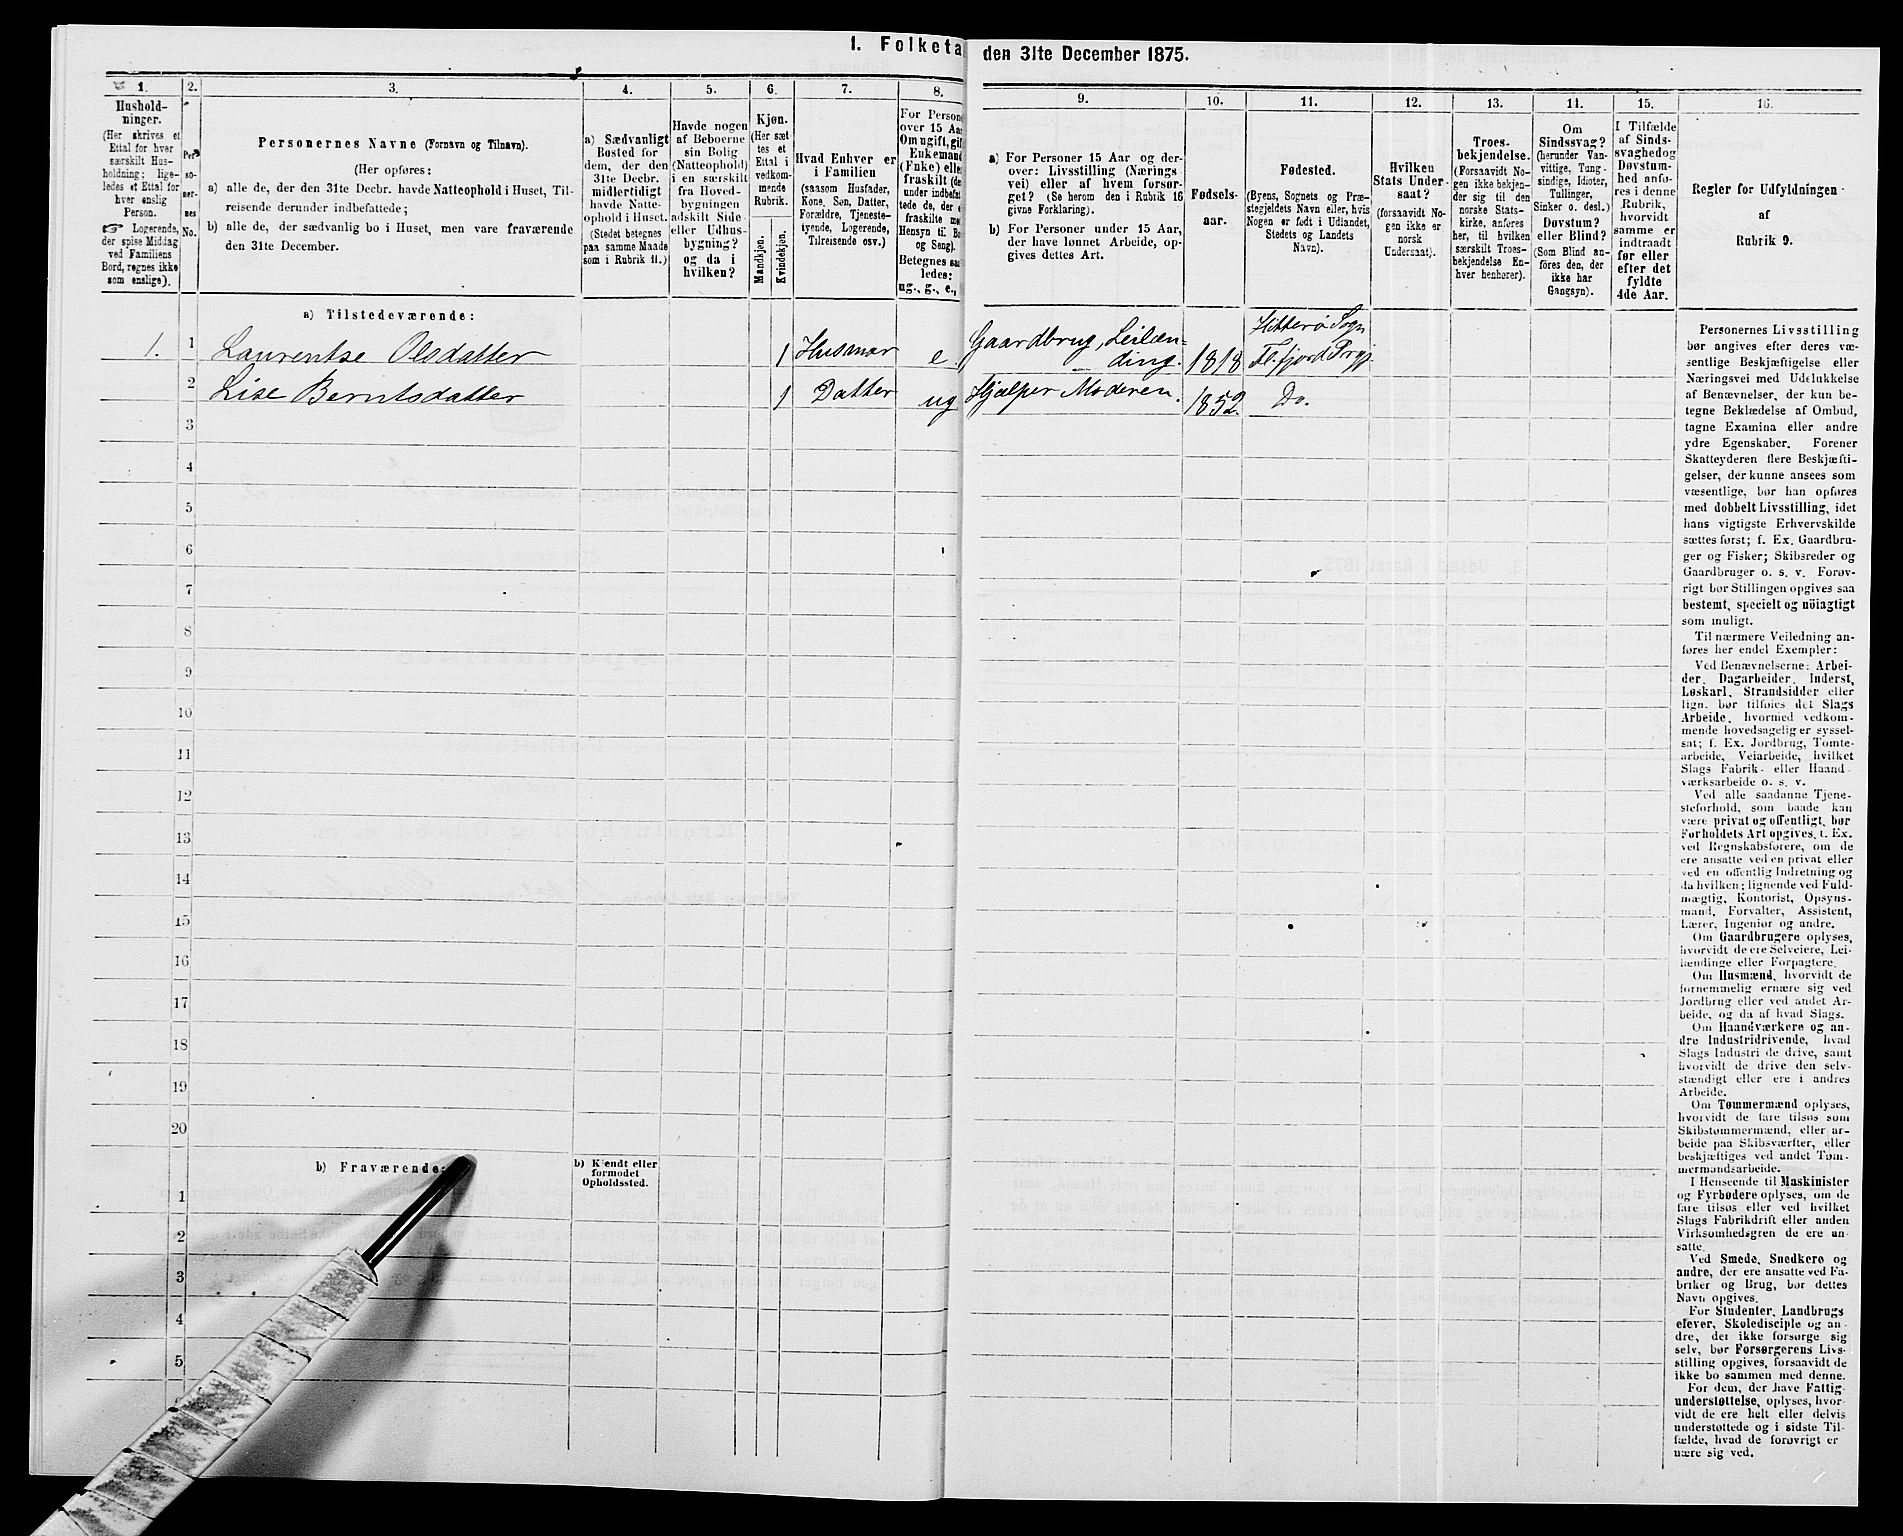 1. Folketa
den 31te December 1875.
1.
2.
3.
4.
5.
6.
7.
8.
Hushold-
ninger.
(Her skrives et
Ettal for hver
særskilt Hus-
holdning; lige-
ledes et Ettal for
hver enslig
Person.
☞ Logerende,
der spise Middag
ved Familiens
Bord, regnes ikke
som enslige).
Per-
so-
ner-
nes
No.
Personernes Navne (Fornavn og Tilnavn).
(Her opføres:
a) alle de, der den 31te Decbr. havde Natteophold i Huset, Til-
reisende derunder indbefattede;
b) alle de, der sædvanlig bo i Huset, men vare fraværende
den 31te December.
a) Sædvanligt
Bosted for
dem, der den
31te Decbr.
midlertidigt
havde Natte-
ophold i Huset.
(Stedet betegnes
paa samme Maade
som i Rubrik 11.)
Havde nogen
af Beboerne
sin Bolig
(Natteophold)
i en særskilt
fra Hoved-
bygningen
adskilt Side-
eller Udhus-
bygning?
og da i
hvilken?
Kjøn.
(Her sæt-
tes et
Ettal i
vedkom-
mende
Rubrik.
Mandkjøn.
Kvindekjøn.
Hvad Enhver er
i Familien
(saasom Husfader,
Kone, Søn, Datter,
Forældre, Tjeneste-
tyende, Logerende,
Tilreisende osv.)
For Persone
over 15 Aar
Om ugift, gif
Enkemand
(Enke) elle
fraskilt (de
under indbefat
tede de, der e
fraskilte me
Hensyn til Bo
og Seng).
Betegnes saa
ledes:
ug., g., e.,
9.
10.
11.
12.
13.
14.
15.
16.
a) For Personer 15 Aar og der-
over: Livsstilling (Nærings-
vei) eller af hvem forsør-
get? (Se herom den i Rubrik 16
givne Forklaring).
b) For Personer under 15 Aar,
der have lønnet Arbeide, op-
gives dettes Art.
Fødsels-
aar.
Fødested.
(Byens, Sognets og Præ-
stegjeldets Navn eller, hvis
Nogen er født i Udlandet,
Stedets og Landets
Navn).
Hvilken
Stats Under-
saat?
(forsaavidt No-
gen ikke er
norsk
Undersaat).
Troes-
bekjendelse.
(Forsaavidt No-
gen ikke bekjen-
der sig til den
norske Stats-
kirke, anføres
her, til hvilken
særskilt Troes-
bekjendelse En-
hver henhører).
Om
Sindssvag?
(herunder Van-
vittige, Tung-
sindige, Idioter,
Tullinger,
Sinker o. desl.)
Døvstum?
eller Blind?
(Som Blind an-
føres den, der
ikke har
Gangsyn).
I Tilfælde
af Sinds-
svaghed og
Døvstum-
hed anfø-
res i denne
Rubrik,
hvorvidt
samme er
indtraadt
før eller
efter det
fyldte
4de Aar.
Regler for Udfyldningen
af
Rubrik 9.
a) Tilstedeværende:
1. 1 Laurentse Olsdatter 1 Husmor e Gaardbrug, Leilæn-
ding. 1818 Hitterø Sogn
Fl.fjord Prgj.
2 Lise Berntsdatter 1 Datter ug Hjælper Moderen. 1852 Do.
3
4
5
6
7
8
9
10
11
12
13
14
15
16
17
18
19
20
b) Fraværende:
b) Kjendt eller
formodet
Opholdssted.
1
2
3
4
5
Personernes Livsstilling
bør angives efter deres væ-
sentlige Beskjæftigelse eller
Næringsvei med Udelukkelse
af Benævnelser, der kun be-
tegne Beklædelse af Ombud,
tagne Examina eller andre
ydre Egenskaber. Forener
Skatteyderen flere Beskjæfti-
gelser, der kunne ansees som
væsentlige, bør han opføres
med dobbelt Livsstilling, idet
hans vigtigste Erhvervskilde
sættes først; f. Ex. Gaardbru-
ger og Fisker; Skibsreder og
Gaardbruger o. s. v. Forøv-
rigt bør Stillingen opgives saa
bestemt, specielt og nöiagtigt
som muligt.
Til nærmere Veiledning an-
føres her endel Exempler:
Ved Benævnelserne: Arbei-
der, Dagarbeider, Inderst,
Løskarl, Strandsidder eller
lign. bør tilføies det Slags
Arbeide, hvormed vedkom-
mende hovedsagelig er syssel-
sat; f. Ex. Jordbrug, Tomte-
arbeide, Veiarbeide, hvilket
Slags Fabrik- eller Haand-
værksarbeide o. s. v.
Ved alle saadanne Tjene-
steforhold, som baade kan
være privat og offentligt, bør
Forholdets Art opgives, t. Ex.
ved Regnskabsførere, om de
ere ansatte ved en privat eller
ved en offentlig Indretning og
da hvilken; lignende ved Fuld-
mægtig, Kontorist, Opsyns-
mand, Forvalter, Assistent,
Lærer, Ingeniør og andre.
Om Gaardbrugere oplyses,
hvorvidt de ere Selveiere, Lei-
lændinge eller Forpagtere.
Om Husmænd, hvorvidt de
fornemmelig ernære sig ved
Jordbrug eller ved andet Ar-
beide, og da af hvad Slags.
Om Haandværkere og an-
dre Industridrivende, hvad
Slags Industri de drive, samt
hvorvidt de drive den selv-
stændigt eller ere i andres
Arbeide.
Om Tømmermænd oplyses,
hvorvidt de fare tilsøs som
Skibstømmermænd, eller ar-
beide paa Skibsværfter, eller
beskjæftiges ved andet Tøm-
mermandsarbeide.
I Henseende til Maskinister
og Fyrbødere oplyses, om de
fare tilsøs eller ved hvilket
Slags Fabrikdrift eller anden
Virksomhedsgren de ere an-
satte.
Ved Smede, Snedkere og
andre, der ere ansatte ved Fa-
briker og Brug, bør dettes
Navn opgives.
For Studenter, Landbrugs-
elever, Skoledisciple og an-
dre, der ikke forsørge sig
selv, bør Forsørgerens Livs-
stilling opgives, forsaavidt de
ikke bo sammen med denne.
For dem, der have Fattig-
understøttelse, oplyses, hvor-
vidt de ere helt eller delvis
understøttede og i sidste Til-
fælde, hvad de forøvrigt er-
nære sig ved.